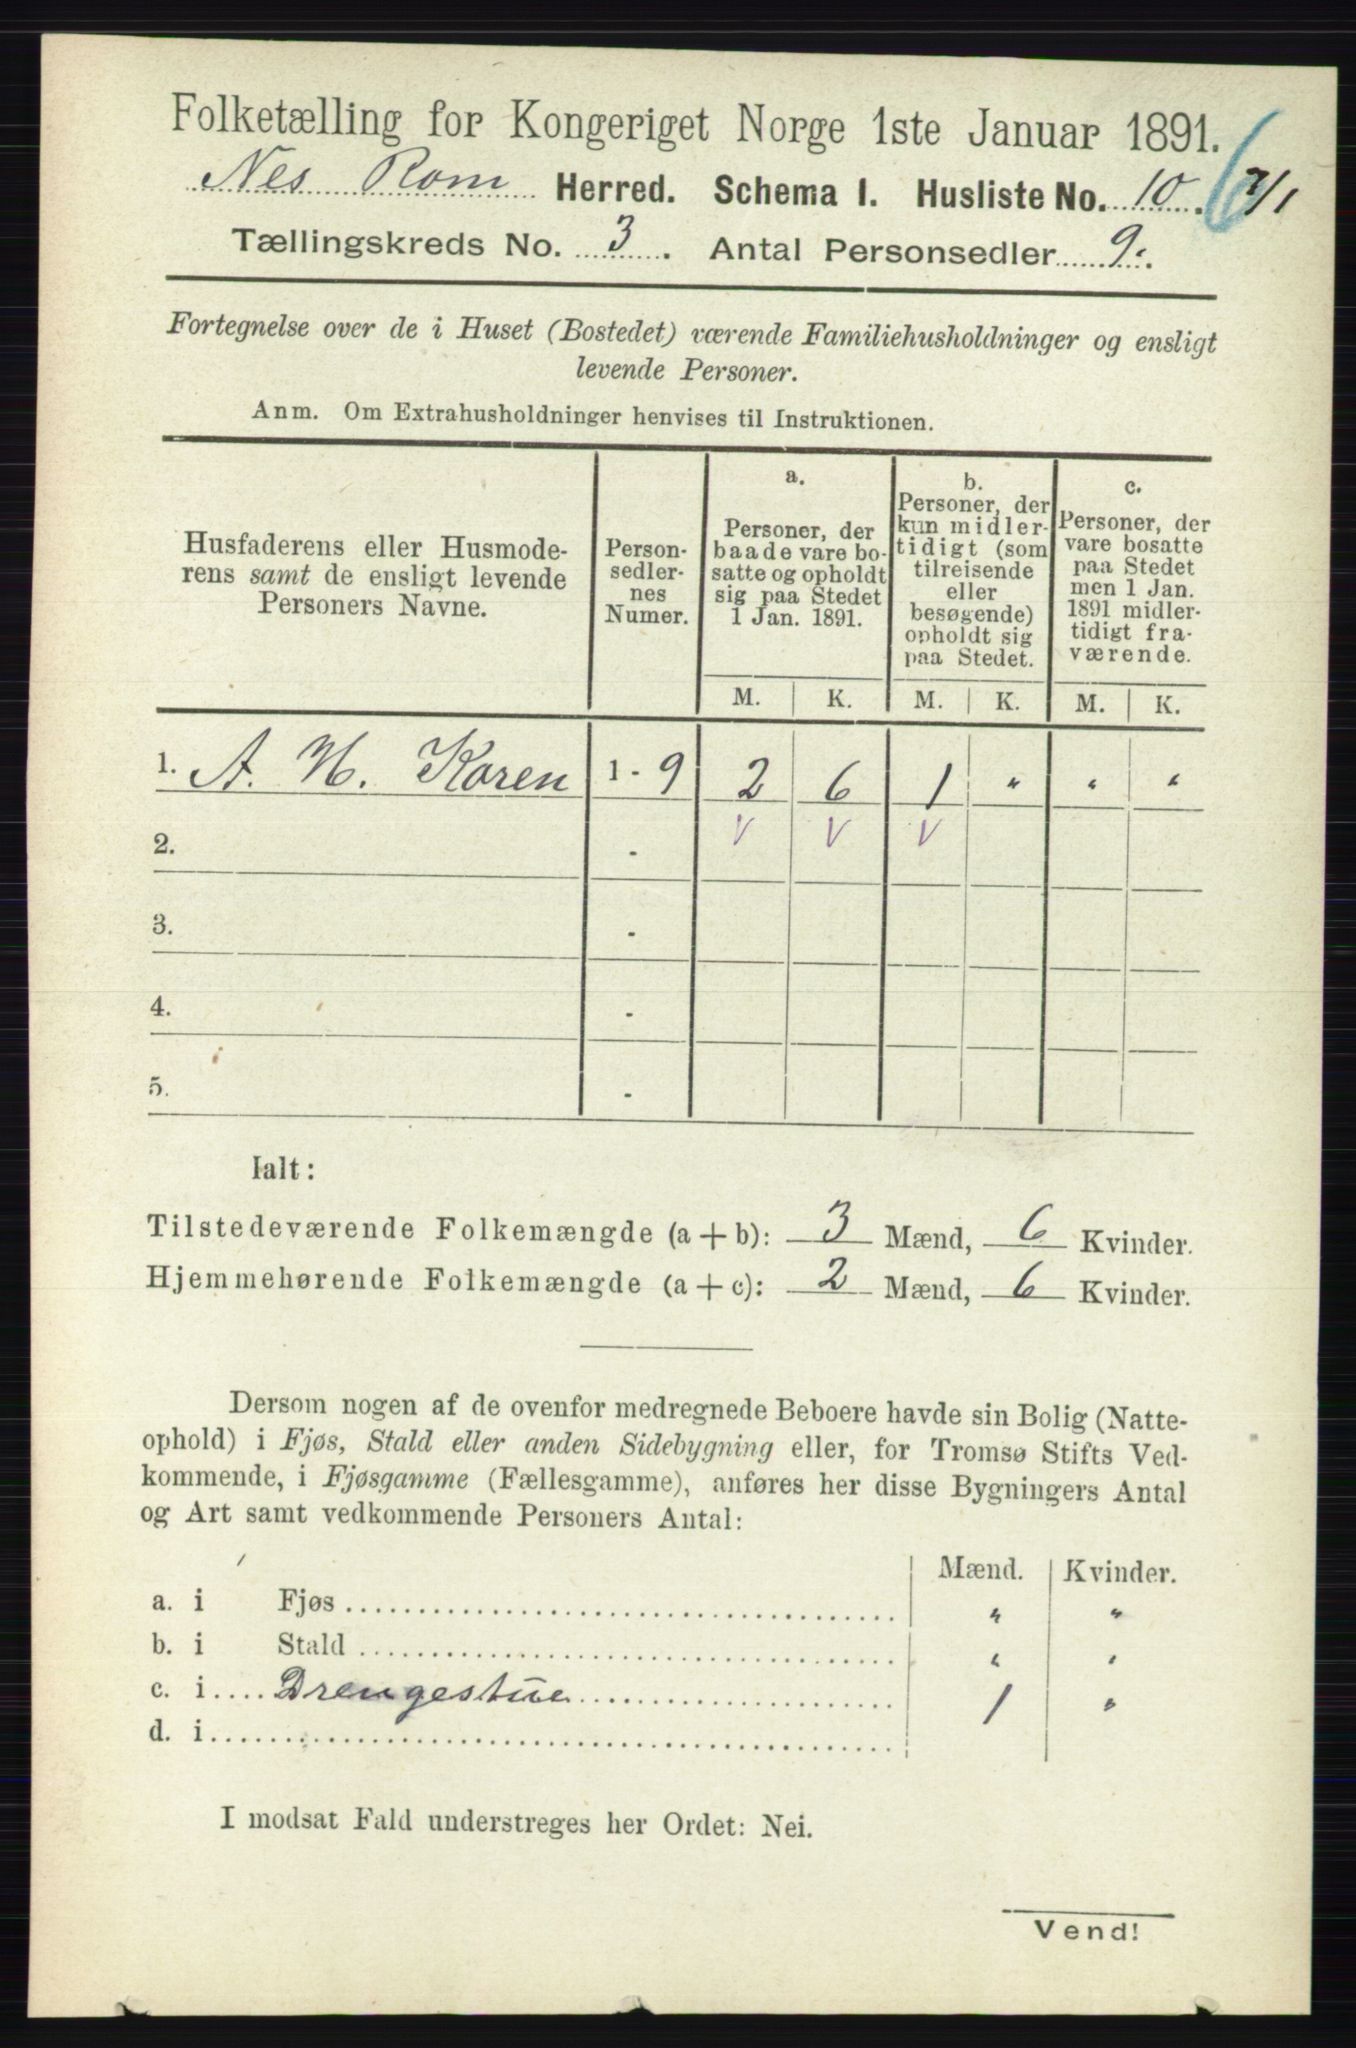 Folketælling for Kongeriget Norge 1ste Januar 1891.
Nes Rom Herred. Schema I. Husliste No. 10. 7/1
Tællingskreds No. 3. Antal Personsedler 9.
Fortegnelse over de i Huset (Bostedet) værende Familiehusholdninger og ensligt
levende Personer.
Anm. Om Extrahusholdninger henvises til Instruktionen.
Husfaderens eller Husmode-
rens samt de ensligt levende
Personers Navne.
Person-
sedler-
nes
Numer.
a.
Personer, der
baade vare bo-
satte og opholdt
sig paa Stedet
1 Jan. 1891.
b.
Personer, der
kun midler-
tidigt (som
tilreisende
eller
besøgende)
opholdt sig
paa Stedet.
c.
Personer, der
vare bosatte
paa Stedet
men 1 Jan.
1891 midler-
tidigt fra-
værende.
M. K. M. K. M. K.
1. A. H. Koren 1 - 9 2 6 1 " " "
2. - V V V
3. -
4. -
5. -
Ialt:
Tilstedeværende Folkemængde (a + b): 3 Mænd, 6 Kvinder.
Hjemmehørende Folkemængde (a + c): 2 Mænd, 6 Kvinder.
Dersom nogen af de ovenfor medregnede Beboere havde sin Bolig (Natte-
ophold) i Fjøs, Stald eller anden Sidebygning eller, for Tromsø Stifts Ved-
kommende, i Fjøsgamme (Fællesgamme), anføres her disse Bygningers Antal
og Art samt vedkommende Personers Antal:
Mænd. Kvinder.
a. i Fjøs " "
b. i Stald " "
c. i Drengestue 1 "
d. i
I modsat Fald understreges her Ordet: Nei.
Vend!